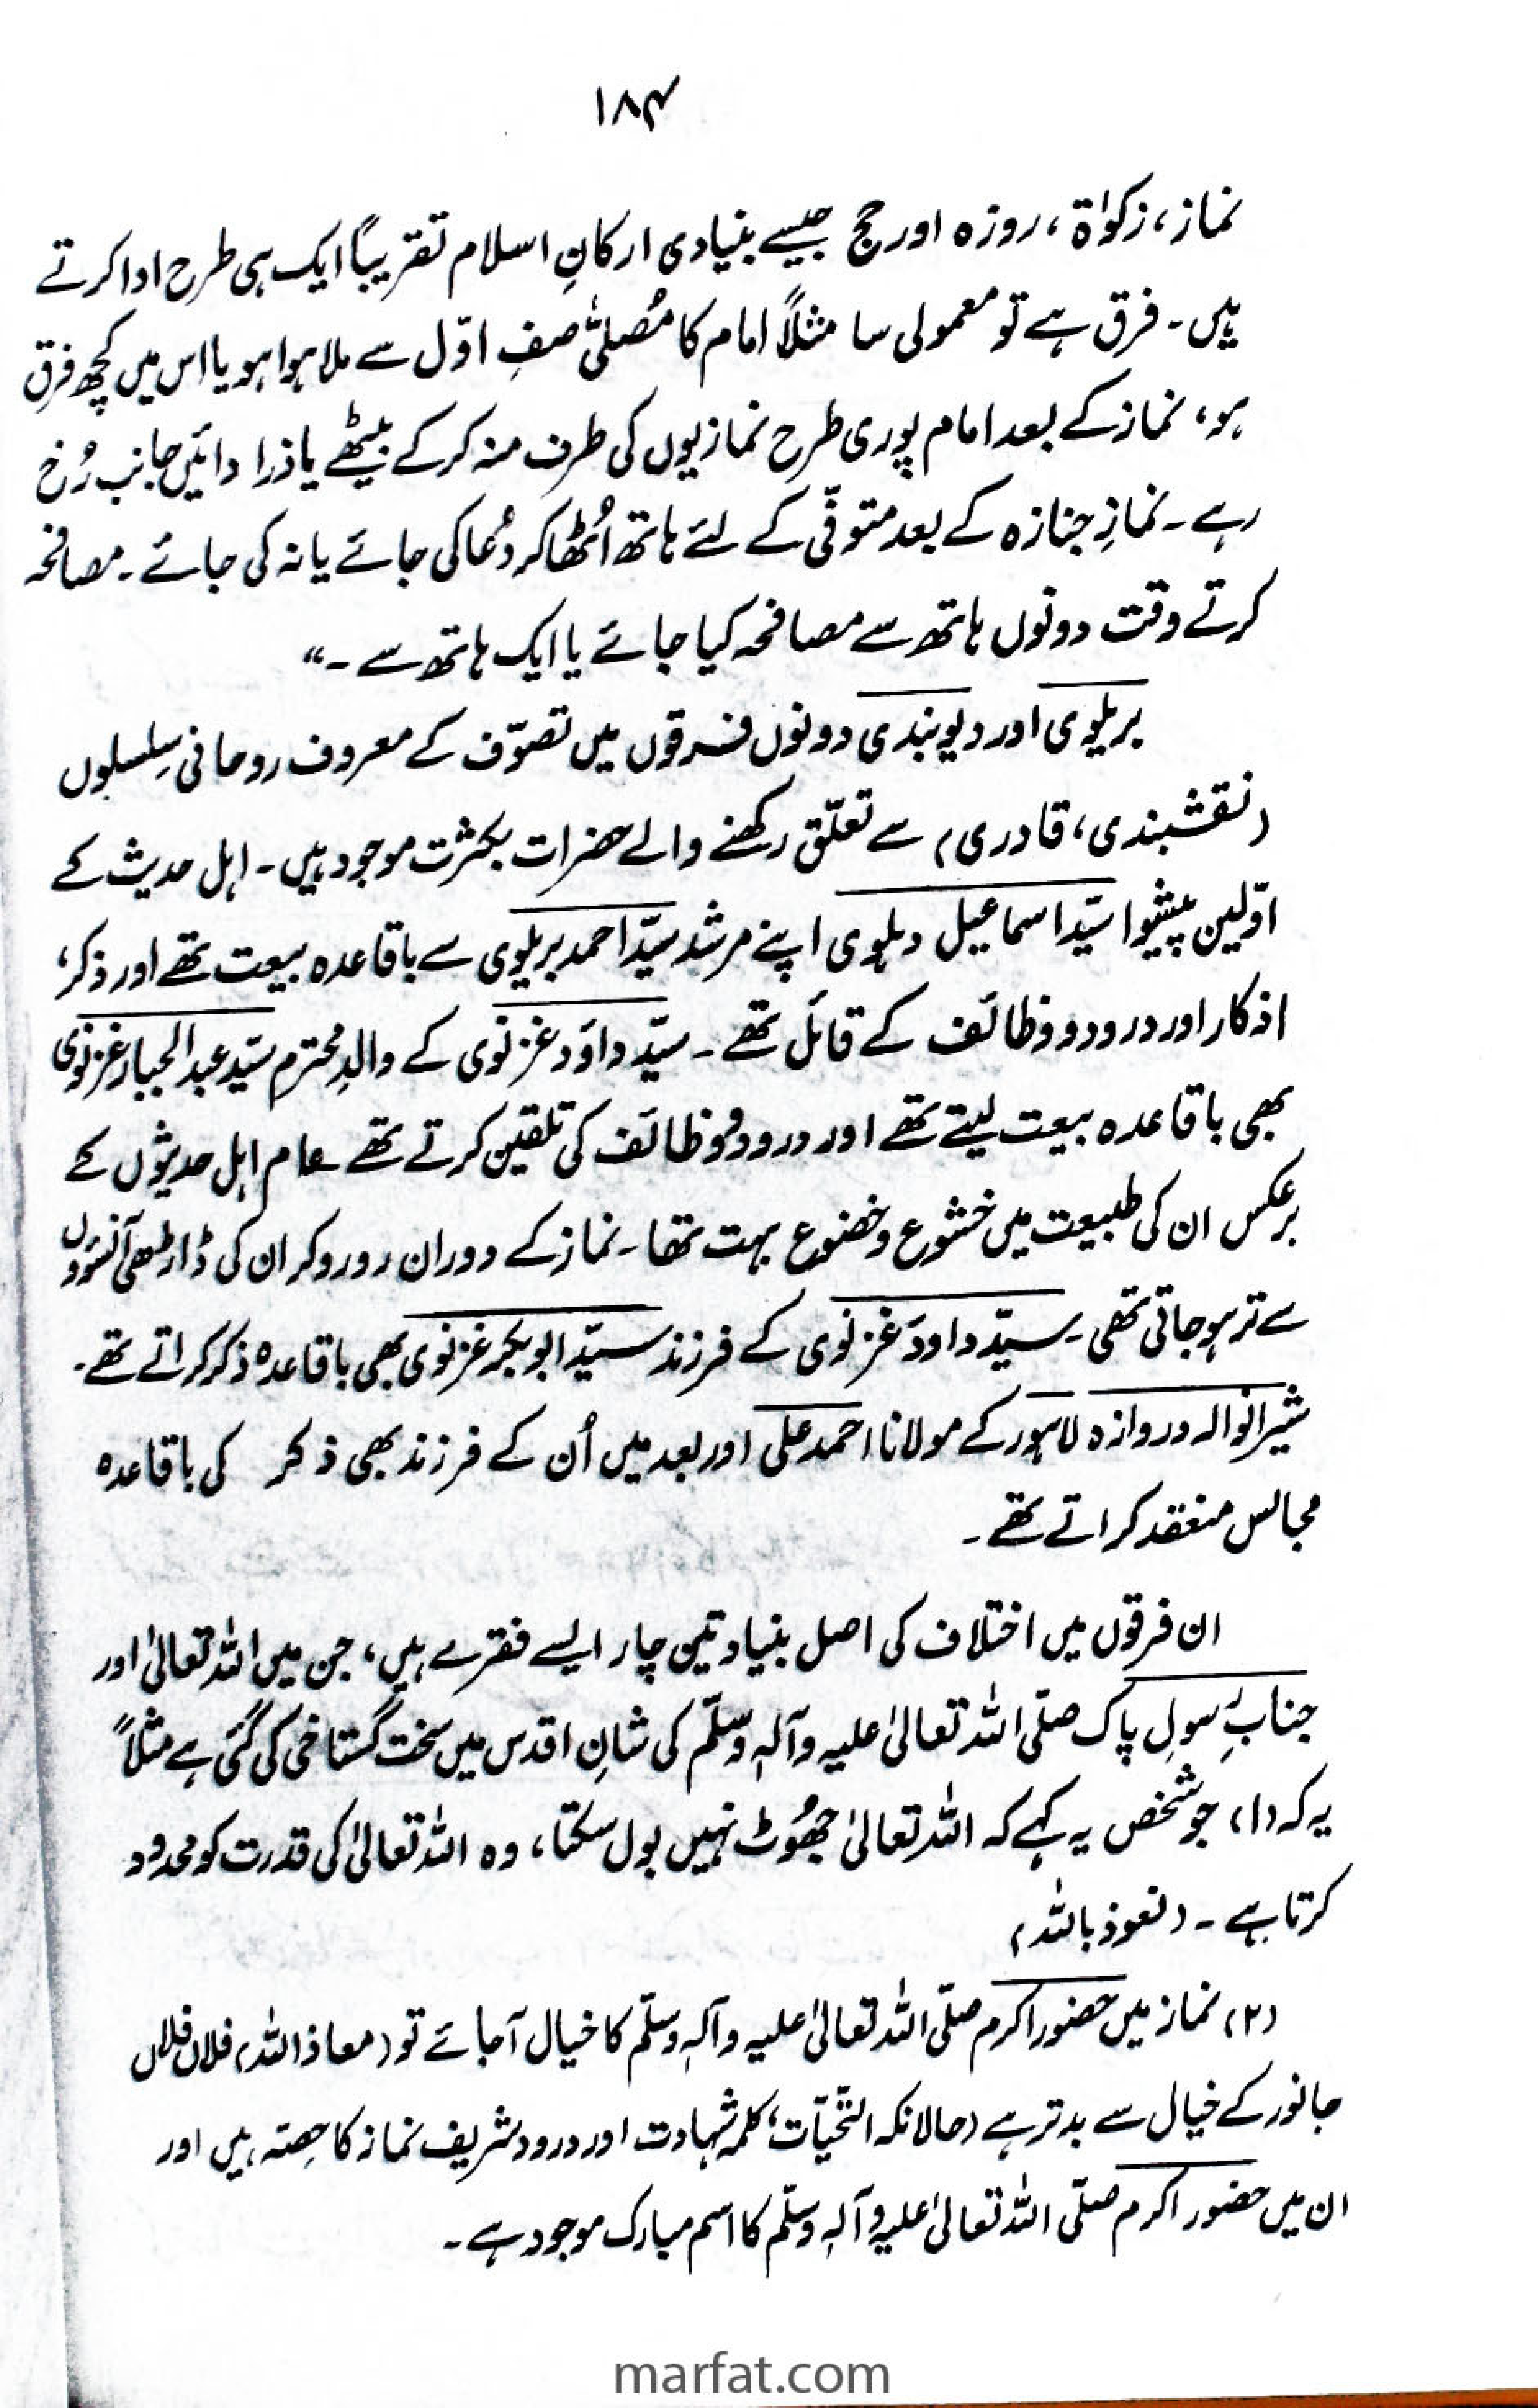 ۱۸۴
نماز، زکوٰۃ، روزہ اور حج جیسے بنیادی ارکانِ اسلام تقریباً ایک ہی طرح ادا کرتے
ہیں۔ فرق ہے تو معمولی سا مثلاً امام کا مُصلّٰی صفِ اوّل سے ملا ہوا ہو یا اس میں کچھ فرق
ہو، نماز کے بعد امام پوری طرح نمازیوں کی طرف منہ کر کے بیٹھے یا ذرا دائیں جانب رُخ
رہے۔ نمازِ جنازہ کے بعد متوفّی کے لئے ہاتھ اُٹھا کر دُعا کی جائے یا نہ کی جائے۔ مصافحہ
کرتے وقت دونوں ہاتھ سے مصافحہ کیا جائے یا ایک ہاتھ سے ۔“
بریلوی اور دیوبندی دونوں فرقوں میں تصوّف کے معروف روحانی سِلسلوں
(نقشبندی، قادری) سے تعلّق رکھنے والے حضرات بکثرت موجود ہیں۔ اہل حدیث کے
اوّلین پیشوا سیّد اسماعیل دہلوی اپنے مرشد سیّد احمد بریلوی سے باقاعدہ بیعت تھے اور ذکر،
اذکار اور درود و وظائف کے قائل تھے۔ سیّد داؤد غزنوی کے والدِ محترم سیّد عبدالجبار غزنوی
بھی باقاعدہ بیعت لیتے تھے اور درود و وظائف کی تلقین کرتے تھے۔ عام اہل حدیثوں کے
برعکس ان کی طبیعت میں خشوع و خضوع بہت تھا۔ نماز کے دوران رو رو کر ان کی ڈاڑھی آنسوؤں
سے تر ہو جاتی تھی۔ سیّد داودَ غزنوی کے فرزند سیّد ابوبکر غزنوی بھی باقاعدہ ذکر کراتے تھے۔
شیرانوالہ دروازہ لاہور کے مولانا احمد علی اور بعد میں اُن کے فرزند بھی ذکر کی باقاعدہ
مجالس منعقد کراتے تھے۔
ان فرقوں میں اختلاف کی اصل بنیاد تین چار ایسے فقرے ہیں، جن میں اللہ تعالیٰ اور
جنابِ رسولِ پاک صلّی اللہ تعالیٰ علیہ وآلہٖ وسلّم کی شانِ اقدس میں سخت گستاخی کی گئی ہے مثلاً
یہ کہ (۱) جو شخص یہ کہے کہ اللہ تعالیٰ جھُوٹ نہیں بول سکتا، وہ اللہ تعالیٰ کی قدرت کو محدود
کرتا ہے۔ (نعوذ باللہ)
(۲) نماز میں حضور اکرم صلّی اللہ تعالیٰ علیہ وآلہٖ وسلّم کا خیال آ جائے تو (معاذ اللہ) فلاں فلاں
جانور کے خیال سے بدتر ہے (حالانکہ التّحیّات، کلمہ شہادت اور درود شریف نماز کا حِصّہ ہیں اور
ان میں حضور اکرم صلّی اللہ تعالیٰ علیہ وآلہٖ وسلّم کا اسم مبارک موجود ہے۔
marfat.com